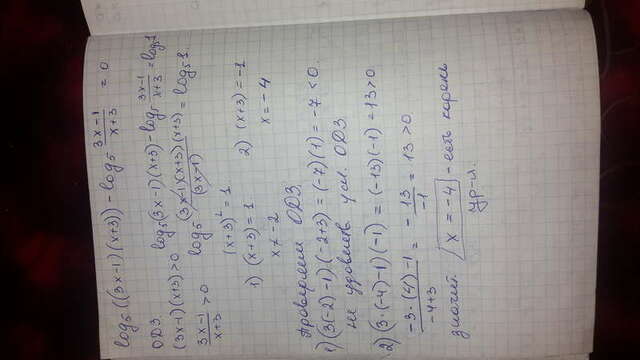 log₅((3x-1)(x+3)) - log₅ (3x-1)/(x+3) = 0
ОДЗ
(3x-1)(x+3) > 0
(3x-1)/(x+3) > 0
log₅(3x-1)(x+3) - log₅ (3x-1)/(x+3) = log₅1
log₅ (3x-1)(x+3)(x+3)/(3x-1) = log₅1
(x+3)² = 1
1) (x+3) = 1
x ≠ -2
2) (x+3) = -1
x = -4
Проверяем ОДЗ.
1) (3(-2)-1)(-2+3) = (-7)(1) = -7 < 0.
не удовлетв усл. ОДЗ
2) (3·(-4)-1)(-1) = (-13)(-1) = 13 > 0
(-3·(4)-1)/(-4+3) = -13/-1 = 13 > 0
значит x = -4 - есть корень
ур-и.